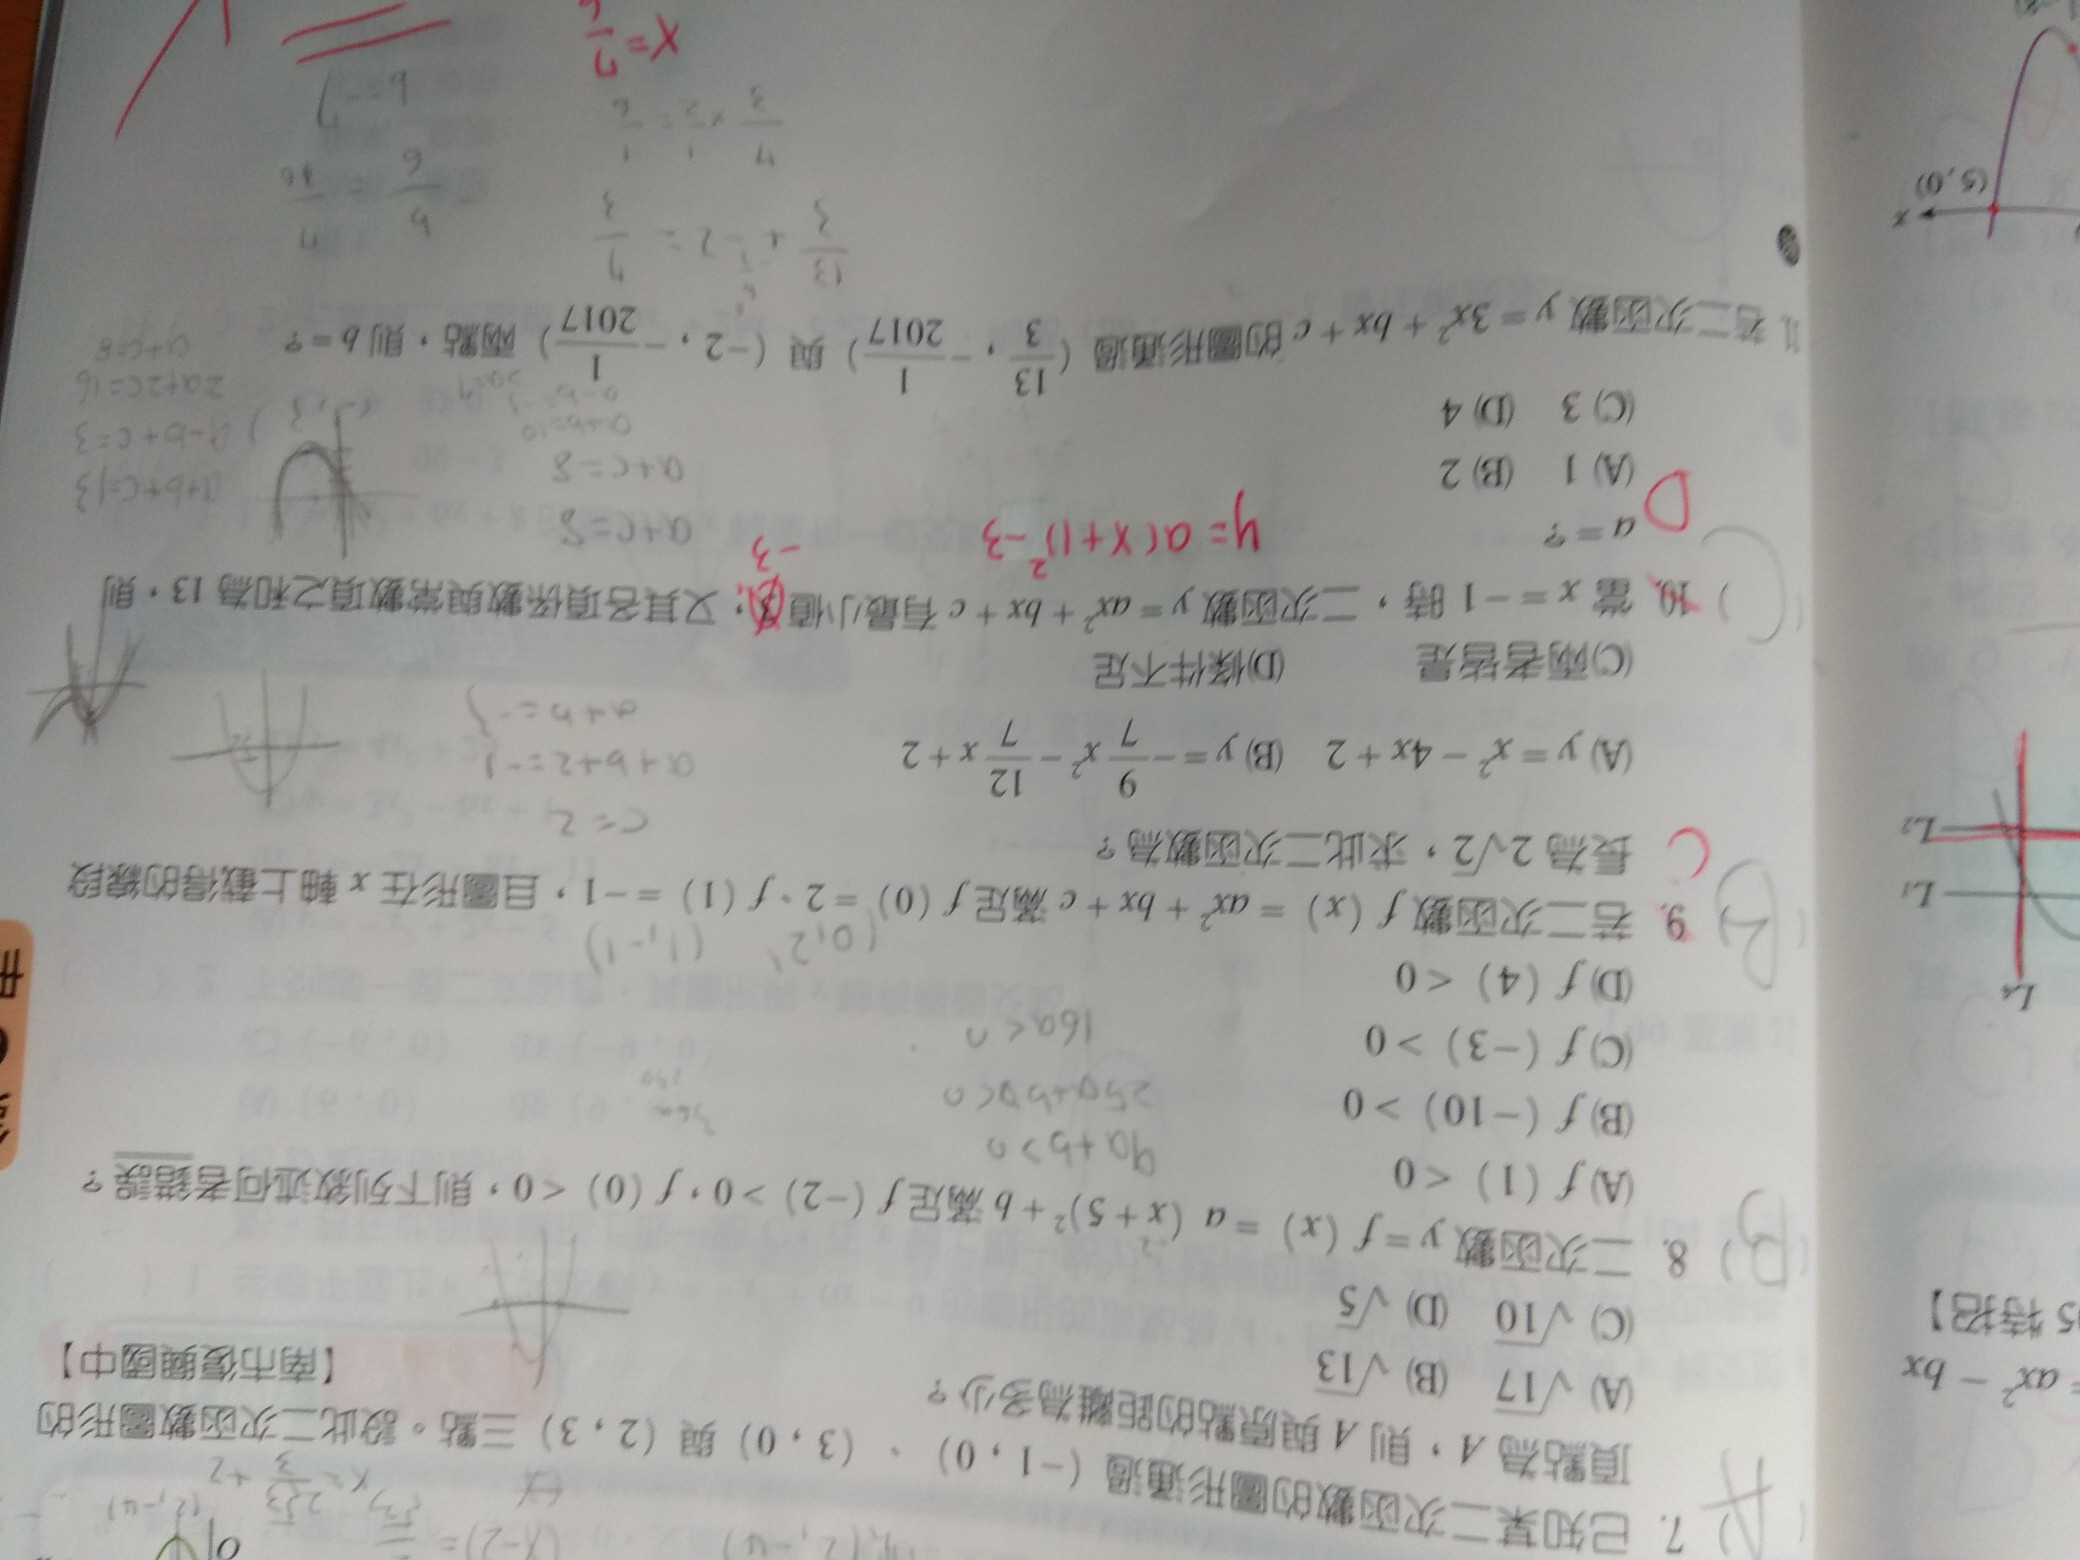 7. 已知某二次函數的圖形通過 (-1,0)、(3,0) 與 (2,3) 三點。設此二次函數圖形的
頂點為 A,則 A 與原點的距離為多少?
【南市復興國中】
(A) √17 (B) √13
(C) √10 (D) √5
(B) 8. 二次函數 y=f(x)=a(x+5)²+b 滿足 f(-2)>0,f(0)<0,則下列敘述何者錯誤?
(A) f(1)<0
9a+b>0
(B) f(-10)>0
25a+b<0
(C) f(-3)>0
16a<0
(D) f(4)<0
(0,2) (1,-1)
(B) 9. 若二次函數 f(x)=ax²+bx+c 滿足 f(0)=2,f(1)=-1,且圖形在 x 軸上截得的線段
C 長為 2√2,求此二次函數為?
c=2
a+b+2=-1
a+b=-3
(A) y=x²-4x+2 (B) y=-9/7x²-12/7x+2
(C) 兩者皆是 (D) 條件不足
(C) 10. 當 x=-1 時,二次函數 y=ax²+bx+c 有最小值 ,又其各項係數與常數項之和為 13,則
-3
D a=?
y=a(x+1)²-3
a+c=8
(A) 1 (B) 2
a+c=8
(C) 3 (D) 4
a+b+c=13
a-b+c=3
2a+2c=16
a+c=8
11. 若二次函數 y=3x²+bx+c 的圖形通過 (13/3,-1/2017) 與 (-2,-1/2017) 兩點,則 b=?
13/3+-2=7/3
7/3×1/2=7/6
b=-7
x=7/6
L₁
L₂
L₄
(5,0)
x
=ax²-bx